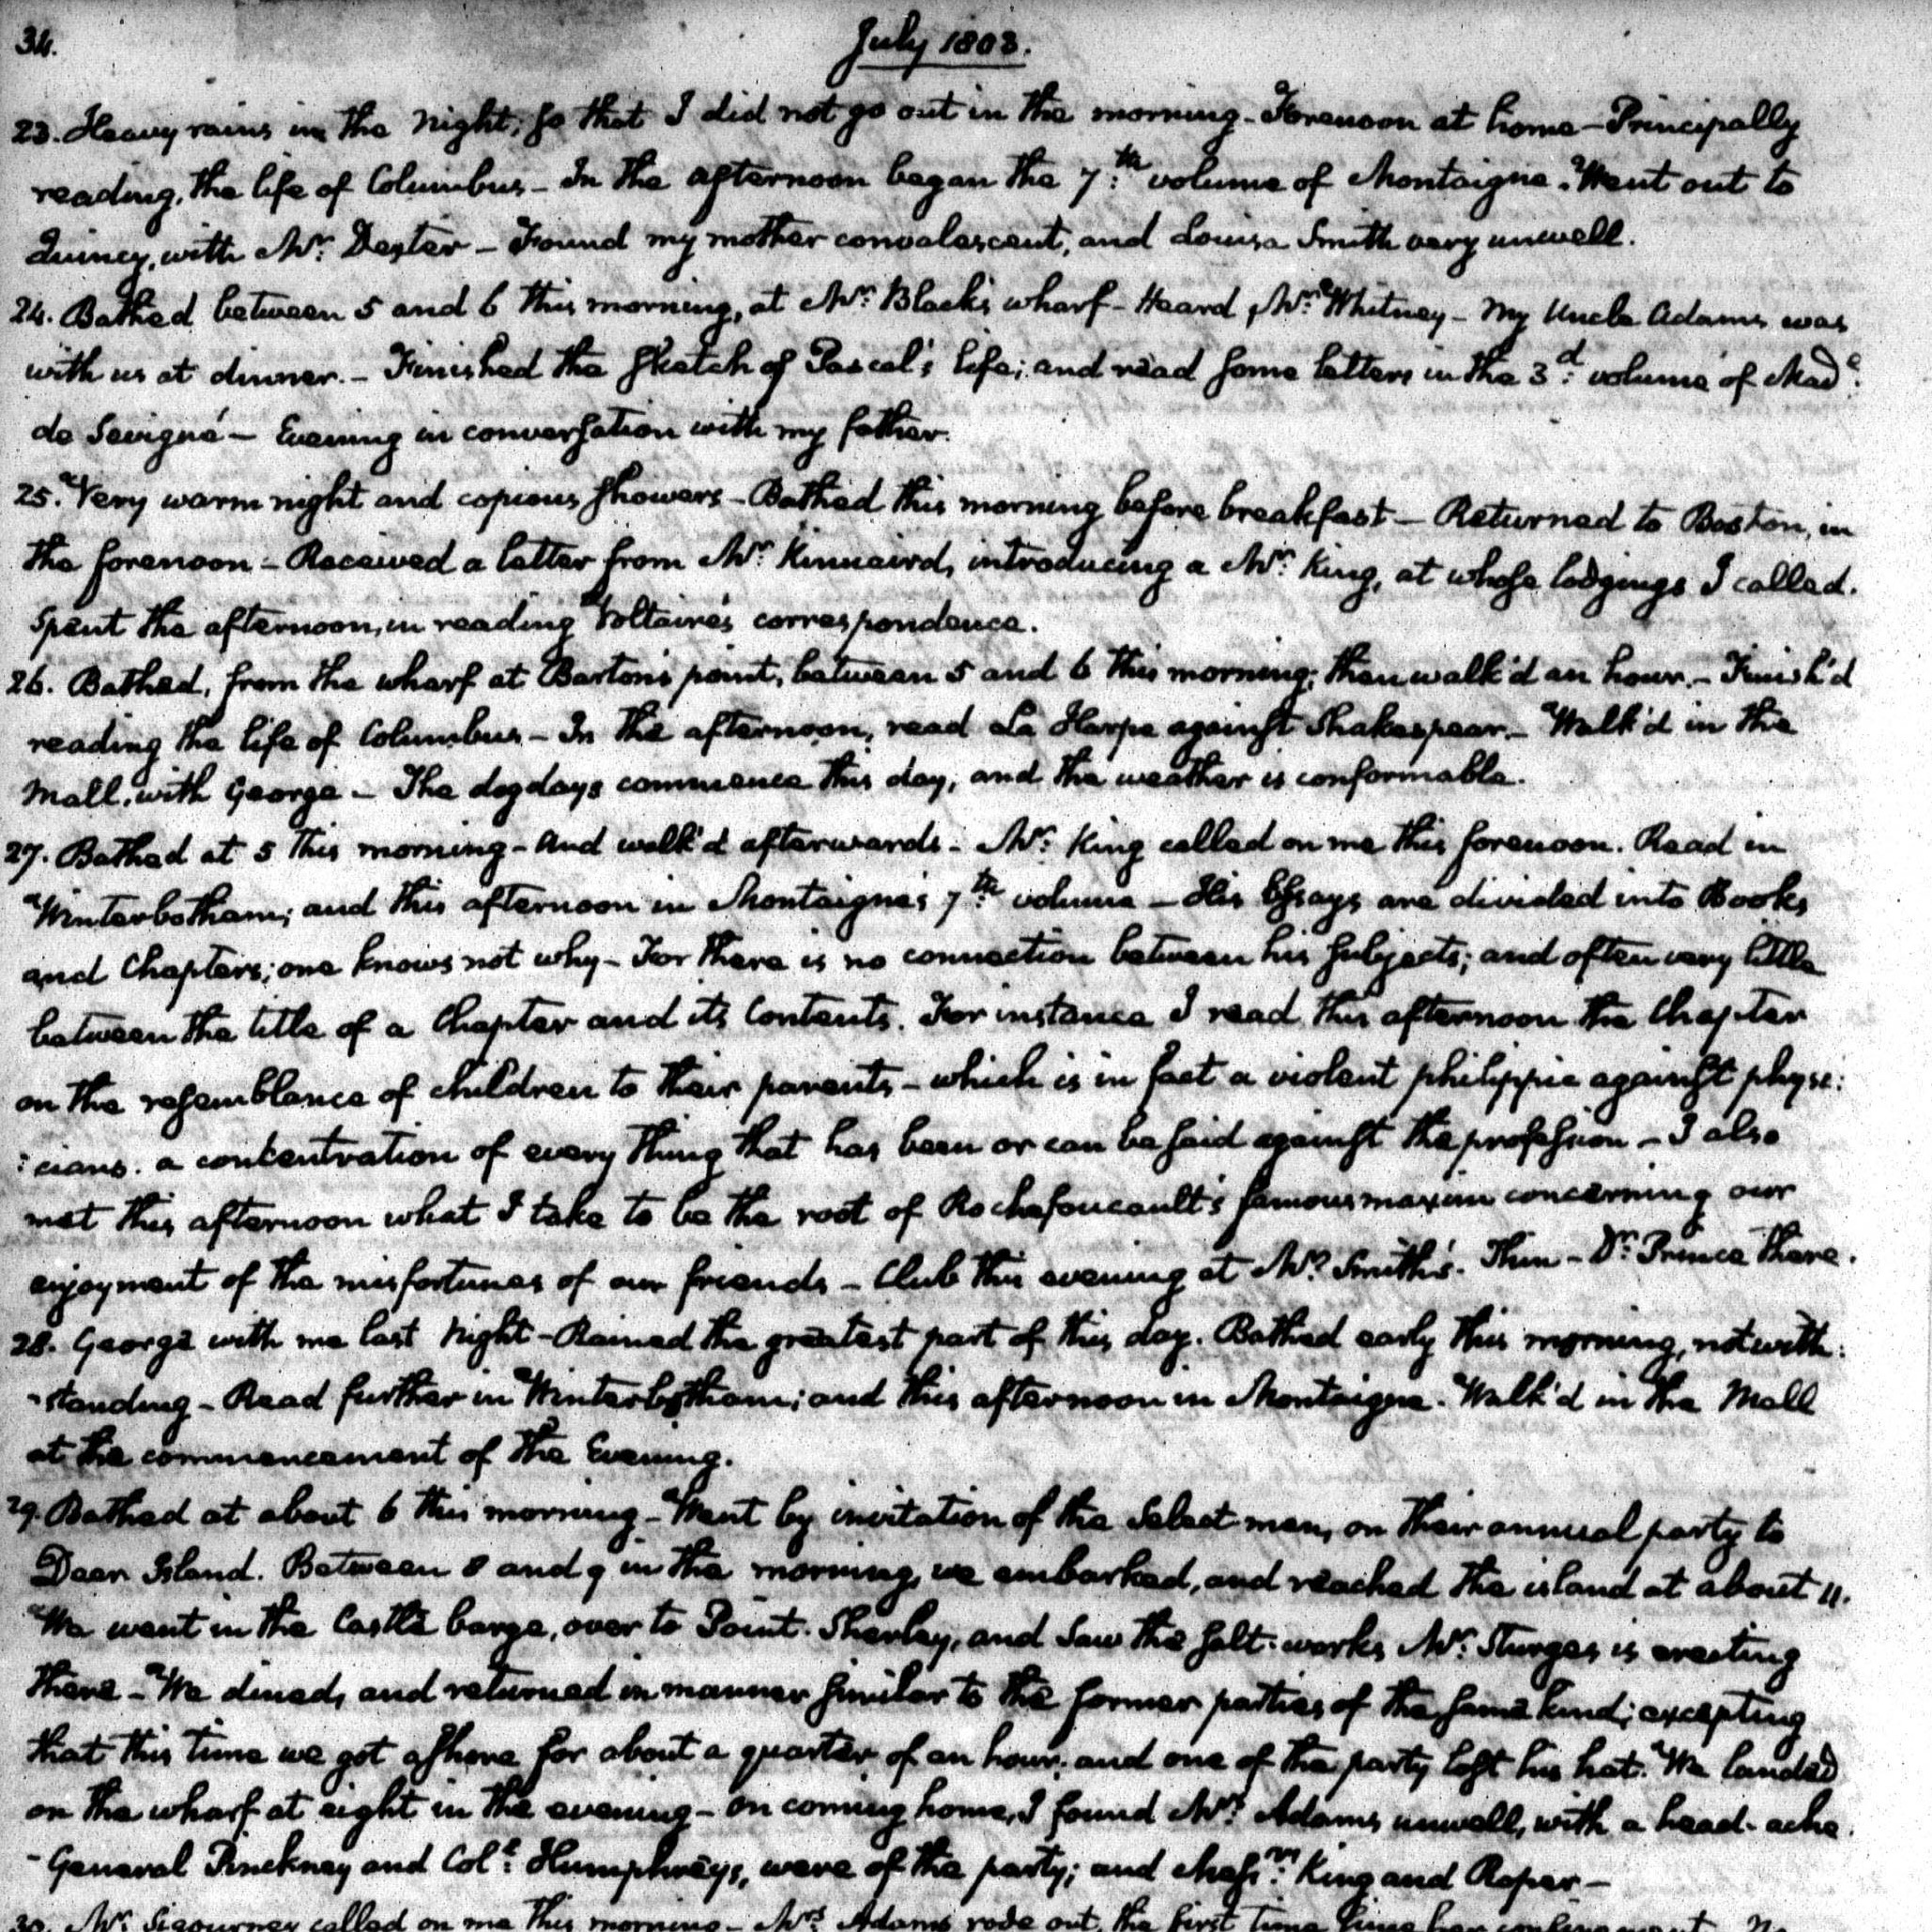 34.
July 1803.
23. Heavy rains in the night; so that I did not go out in the morning - Forenoon at home - Principally
reading, the life of Columbus - In the afternoon began the 7:th volume of Montaigne. Went out to
Quincy, with Mr: Dexter - Found my mother convalescent, and Louisa Smith very unwell.
24. Bathed between 5 and 6 this morning, at Mr: Black's wharf - Heard Mr: Whitney - My Uncle Adams was
with us at dinner. - Finished the sketch of Pascal's life; and read some letters in the 3:d volume of Made:
de Sevigné - Evening in conversation with my father.
25. Very warm night and copious showers - Bathed this morning before breakfast - Returned to Boston, in
the forenoon - Received a letter from Mr: Kinnaird, introducing a Mr: King, at whose lodgings I called.
Spent the afternoon, in reading Voltaire's correspondence.
26. Bathed, from the wharf at Barton's point, between 5 and 6 this morning; then walk'd an hour. - Finish'd
reading the life of Columbus - In the afternoon, read La Harpe against Shakespear. - Walk'd in the
Mall, with George - The dogdays commence this day, and the weather is conformable.
27. Bathed at 5 this morning - And walk'd afterwards - Mr: King called on me this forenoon. Read in
Winterbotham; and this afternoon in Montaigne's 7:th volume - His Essays are divided into Books
and Chapters; one knows not why - For there is no connection between his subjects; and often very little
between the title of a Chapter and its Contents. For instance I read this afternoon the Chapter
on the resemblance of children to their parents - which is in fact a violent philippic against physi:
:cians. a concentration of every thing that has been or can be said against the profession - I also
met this afternoon what I take to be the root of Rochefoucault's famous maxim concerning our
enjoyment of the misfortunes of our friends - Club this evening at Mr: Smith's. Thin - Dr: Prince there.
28. George with me last night - Rained the greatest part of this day. Bathed early this morning, notwith:
-standing - Read further in Winterbotham; and this afternoon in Montaigne. Walk'd in the Mall
at the commencement of the Evening.
29. Bathed at about 6 this morning - Went by invitation of the Select men, on their annual party to
Deer Island. Between 8 and 9 in the morning, we embarked, and reached the island at about 11.
We went in the Castle barge, over to Point-Sherley, and saw the salt-works Mr: Sturges is erecting
there - We dined, and returned in manner similar to the former parties of the same kind; excepting
that this time we got ashore for about a quarter of an hour; and one of the party lost his hat. We landed
on the wharf at eight in the evening - on coming home, I found Mrs: Adams unwell, with a head-ache.
- General Pinckney and Col:l Humphreys, were of the party; and Messrs: King and Roper -
30. Mr: Sigourney called on me this morning - Mrs: Adams rode out, the first time since her confinement.